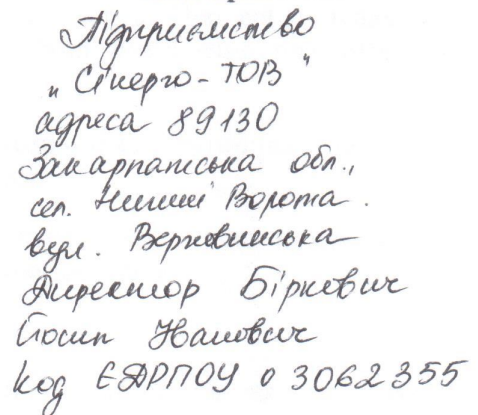 Підприємство
„Сінерго-ТОВ"
адреса 89130
Закарпатська обл.,
сел. Нижні Ворота.
вул. Верховинська
Директор Біркович
Йосип Іванович
код ЄДРПОУ 03062355